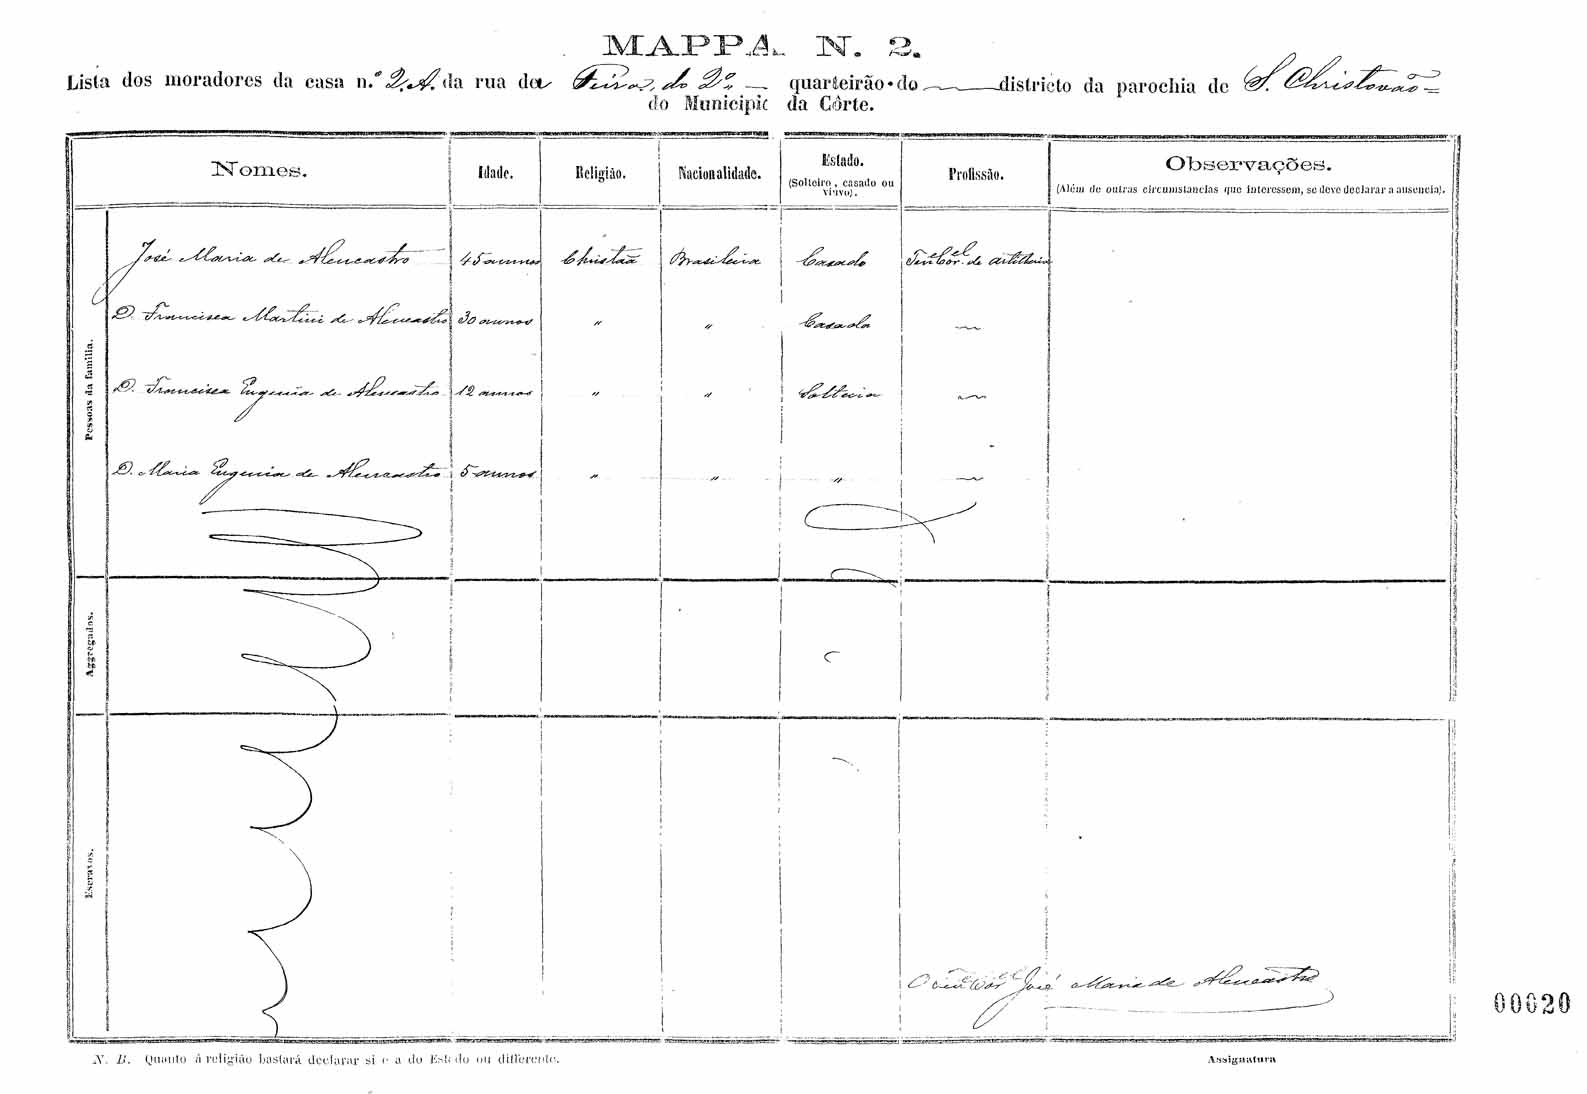 MAPPA N. 2.
Lista dos moradores da casa n.º 2.A. da rua da Feira, do 2º quarteirão do districto da parochia de S. Christovão
do Municipio da Côrte.
Nomes. Idade. Religião. Nacionalidade. Estado. (Solteiro, casado ou viuvo). Profissão. Observações. (Além de outras circumstancias que interessem, se deve declarar a ausencia).
Pessoas da familia.
José Maria de Alencastro 45 annos Christaã Brasileira Casado Tenᵉ Corᵉˡ de artilheria
D. Francisca Martini de Alencastro 30 annos " " Casada
D. Francisca Eugenia de Alencastro 12 annos " " Solteira
D. Maria Eugenia de Alencastro 5 annos " " "
Aggregados.
Escravos.
O Tenᵉ Corᵉˡ José Maria de Alencastro
00020
N. B. Quanto á religião bastará declarar si e a do Estado ou differente.
Assignatura